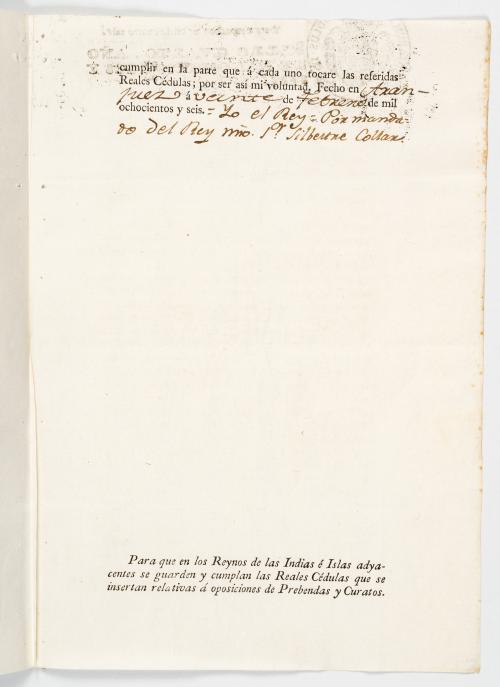 cumplir en la parte que á cada uno tocare las referidas
Reales Cédulas; por ser así mi voluntad. Fecho en Aran-
juez á veinte de Febrero de mil
ochocientos y seis. = Yo el Rey = Por manda-
do del Rey nro. Sr. Silbestre Collar.
Para que en los Reynos de las Indias é Islas adya-
centes se guarden y cumplan las Reales Cédulas que se
insertan relativas á oposiciones de Prebendas y Curatos.